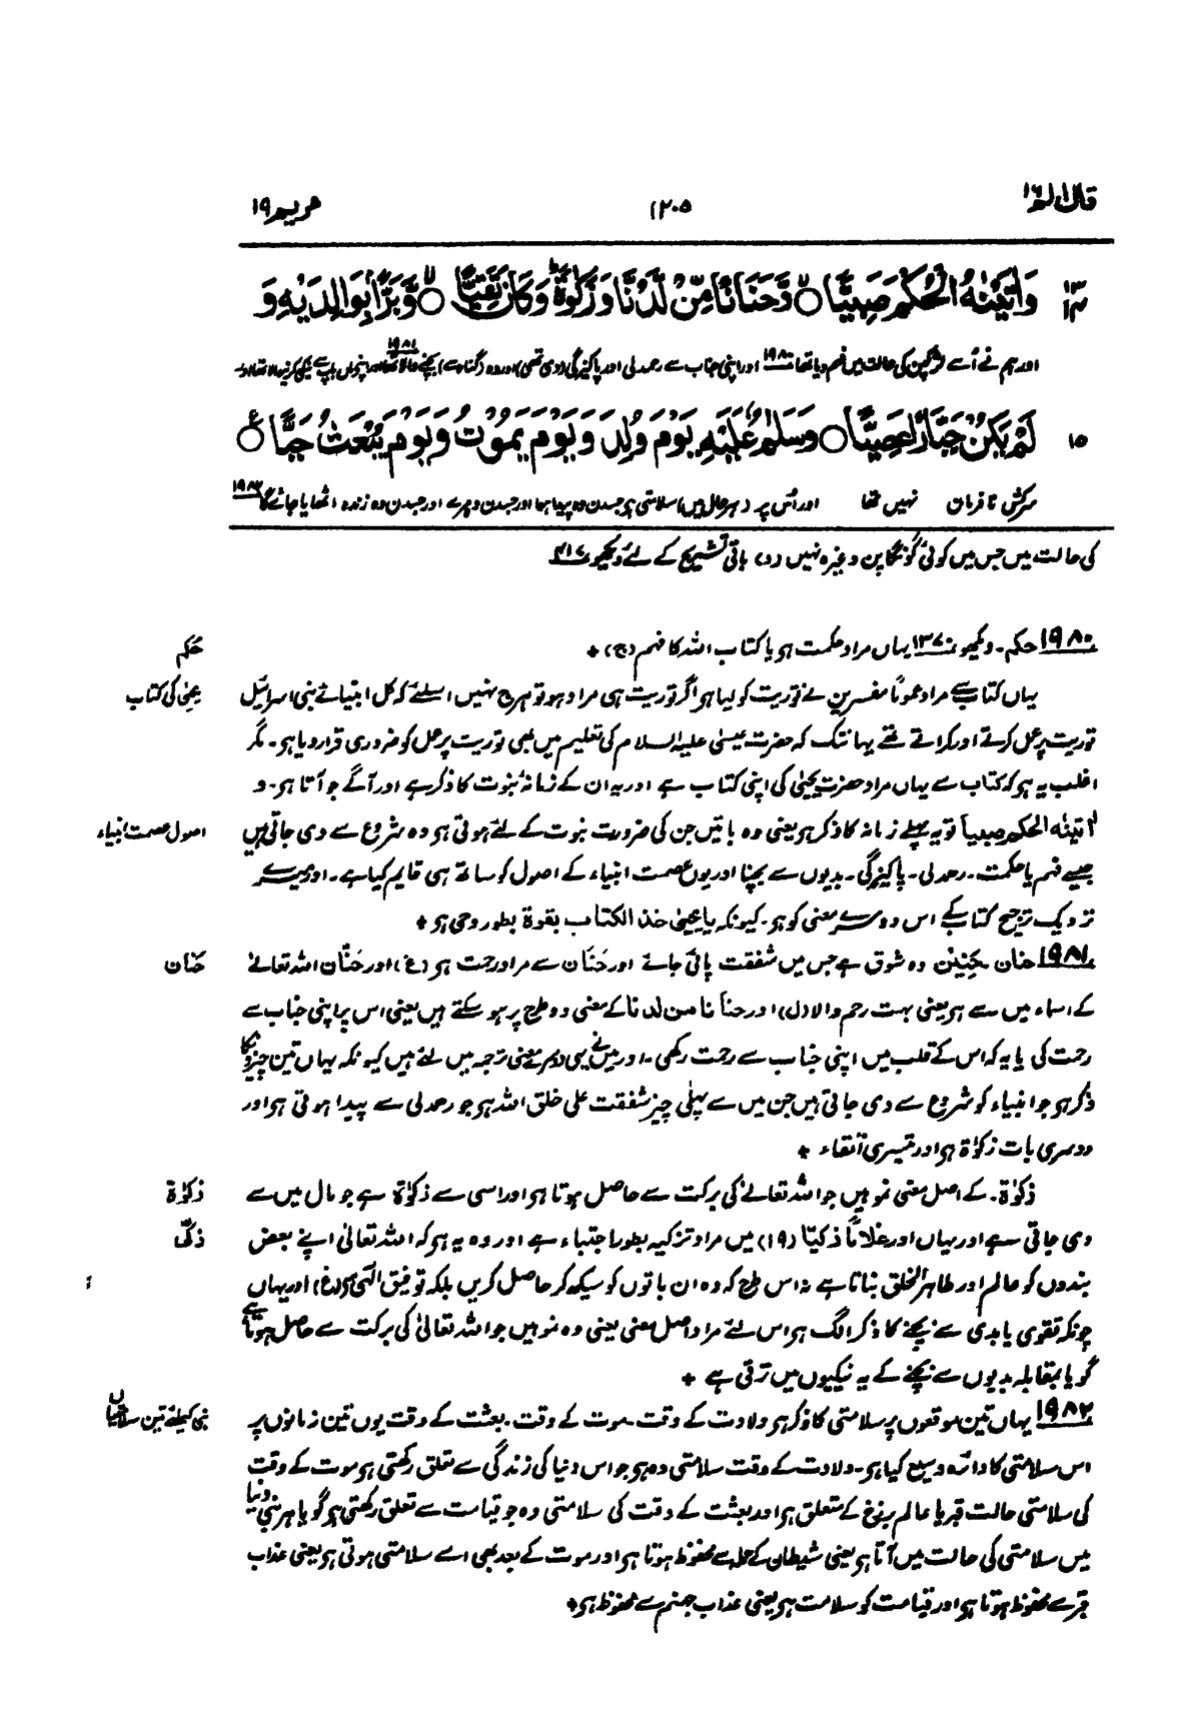 قال الم ١٦ ١٢٠٥ مريم ١٩
١٣ ١٤ وَاٰتَيْنٰهُ الْحُكْمَ صَبِيًّا ۙ وَّحَنَانًا مِّنْ لَّدُنَّا وَزَكٰوةً ؕ وَكَانَ تَقِيًّا ۙ وَّبَرًّۢا بِوَالِدَيْهِ وَ
اور ہم نے اُسے لڑکپن کی حالت میں فہم دیا تھا ١٩٨٠ اور اپنی جناب سے رحمدلی اور پاکیزگی (دی تھی) اور وہ (گناہ سے) بچنے والا تھا ١٩٨١ اور اپنے ماں باپ سے نیکی کرنیوالا تھا اور
١٥ لَمْ يَكُنْ جَبَّارًا عَصِيًّا وَسَلٰمٌ عَلَيْهِ يَوْمَ وُلِدَ وَيَوْمَ يَمُوْتُ وَيَوْمَ يُبْعَثُ حَيًّا ۧ
سرکش نافرمان نہیں تھا اور اُس پر (ہر حال میں) سلامتی ہو جسدن وہ پیدا ہوا اور جسدن وہ مرے اور جسدن وہ زندہ اٹھایا جائے گا ١٩٨٢
کی حالت میں جس میں کوئی گونگا پن وغیرہ نہیں (د) باقی تشریح کے لئے دیکھو ٤١٧
١٩٨٠ حکم۔ دیکھو ١٣٧ یہاں مراد حکمت ہو یا کتاب اللہ کا فہم (ج) +
حُکم
یہاں کتاب سے مراد عموماً مفسرین نے توریت کو لیا ہو اگر توریت ہی مراد ہو تو ہرج نہیں اسلئے کہ کل انبیائے بنی اسرائیل
یحییٰ کی کتاب
توریت پر عمل کرتے اور کراتے تھے یہانتک کہ حضرت عیسیٰ علیہ السلام کی تعلیم میں بھی توریت پر عمل کو ضروری قرار دیا ہو۔ مگر
اغلب یہ ہو کہ کتاب سے یہاں مراد حضرت یحییٰ کی اپنی کتاب ہے اور یہ ان کے زمانۂ نبوت کا ذکر ہے اور آگے جو آتا ہو۔ و
اٰتینٰه الحکم صبیاً تو یہ پہلے زمانہ کا ذکر ہو یعنی وہ باتیں جن کی ضرورت نبوت کے لئے ہوتی ہو وہ شروع سے دی جاتی ہیں
اصول عصمت انبیاء
جیسے فہم یا حکمت۔ رحمدلی۔ پاکیزگی۔ بدیوں سے بچنا اور یوں عصمت انبیاء کے اصول کو ساتھ ہی قایم کیا ہے۔ اور میرے
نزدیک ترجیح کتاب کے اس دوسرے معنی کو ہو۔ کیونکہ یا یحییٰ خذ الکتاب بقوة بطور وحی ہو +
١٩٨١ حنان حنین وہ شوق ہے جس میں شفقت پائی جائے اور حَنَان سے مراد رحمت ہو (غ) اور حَنّان اللہ تعالےٰ
حَنان
کے اسماء میں سے ہو یعنی بہت رحم والا (ل) اور حناناً من لدنا کے معنی دو طرح پر ہو سکتے ہیں یعنی اس پر اپنی جناب سے
رحمت کی یا یہ کہ اس کے قلب میں اپنی جناب سے رحمت رکھی۔ اور مینے یہی دوسرے معنی ترجمہ میں لئے ہیں کیونکہ یہاں تین چیزونکا
ذکر ہو جو انبیاء کو شروع سے دی جاتی ہیں جن میں سے پہلی چیز شفقت علیٰ خلق اللہ ہو جو رحمدلی سے پیدا ہوتی ہو اور
دوسری بات زکوٰة ہو اور تیسری اتقاء +
زکوٰة۔ کے اصل معنی نمو ہیں جو اللہ تعالےٰ کی برکت سے حاصل ہوتا ہو اور اسی سے زکوٰة ہے جو مال میں سے
زکوٰة
دی جاتی ہے اور یہاں اور غلاماً زکیّا (١٩) میں مراد تزکیہ بطور اجتباء ہے اور وہ یہ ہو کہ اللہ تعالیٰ اپنے بعض
زکیّ
بندوں کو عالم اور طاہر الخلق بناتا ہے نہ اس طرح کہ وہ ان باتوں کو سیکھ کر حاصل کریں بلکہ توفیق الٰہی سے (غ) اور یہاں
چونکہ تقویٰ یا بدی سے بچنے کا ذکر الگ ہو اس لئے مراد اصل معنی یعنی وہ نمو ہیں جو اللہ تعالیٰ کی برکت سے حاصل ہوتا ہے
گویا بمقابلہ بدیوں سے بچنے کے یہ نیکیوں میں ترقی ہے +
١٩٨٢ یہاں تین موقعوں پر سلامتی کا ذکر ہو ولادت کے وقت۔ موت کے وقت۔ بعثت کے وقت یوں تین زمانوں پر
نبی کیلئے تین سلامتیاں
اس سلامتی کا دائرہ وسیع کیا ہو۔ ولادت کے وقت سلامتی وہ ہو جو اس دنیا کی زندگی سے تعلق رکھتی ہو موت کے وقت
کی سلامتی حالت قبر یا عالم برزخ کے متعلق ہو اور بعثت کے وقت کی سلامتی وہ جو قیامت سے تعلق رکھتی ہو گویا ہر نبی دنیا
میں سلامتی کی حالت میں آتا ہو یعنی شیطان کے حملہ سے محفوظ ہوتا ہو اور موت کے بعد بھی اسے سلامتی ہوتی ہو یعنی عذاب
قبر سے محفوظ ہوتا ہو اور قیامت کو سلامت ہو یعنی عذاب جہنم سے محفوظ ہو+